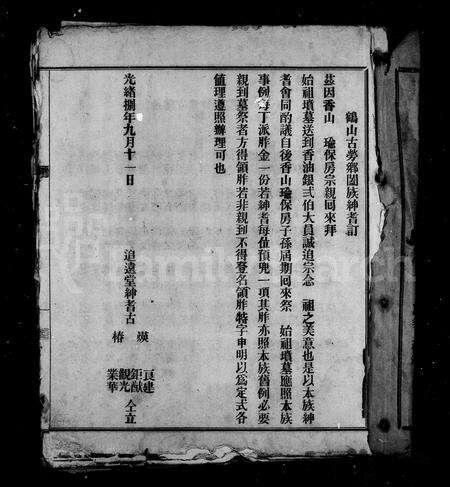 鶴山古勞鄉闔族紳耆訂
茲因香山 瑜保房宗親回來拜
始祖墳墓送到香油銀弍伯大員誠追宗念 祖之美意也是以本族紳
耆會同酌議自後香山瑜保房子孫屆期回來祭 始祖墳墓應照本族
事例每丁派胙金一份若紳耆每位預兜一項其胙亦照本族舊例必要
親到墓祭者方得領胙若非親到不得登名領胙特字申明以為定式各
值理遵照辦理可也
光緒捌年九月十一日 追遠堂紳耆古 瑛 椿 良建 鉅猷 觀光 業華 仝立
FamilySearch